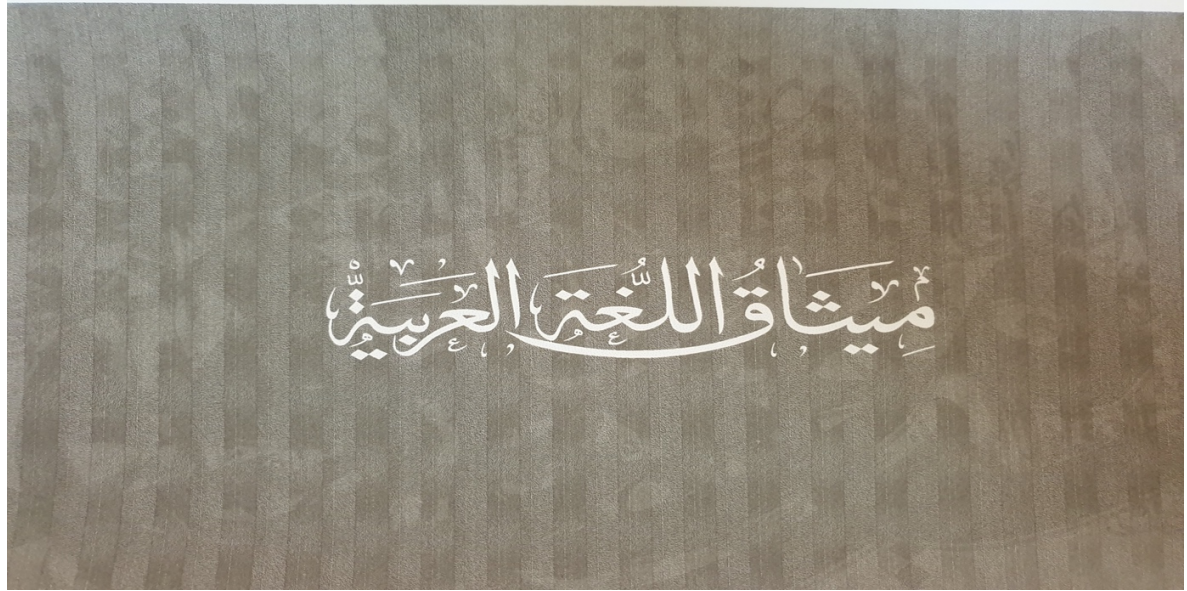 مِيثَاقُ اللُّغَةِ العَرَبِيَّةِ